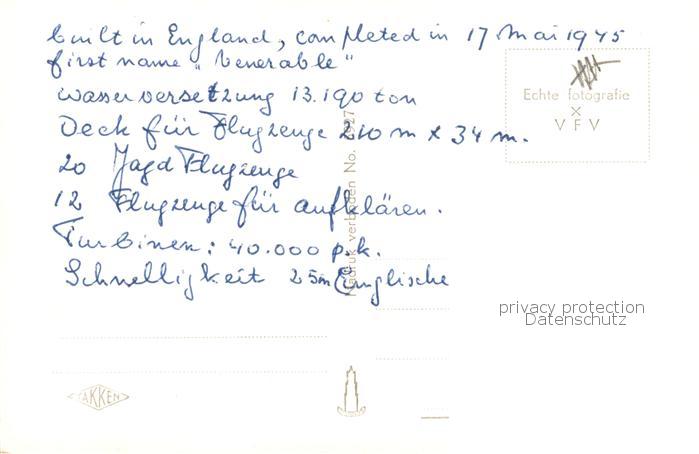 built in England, completed in 17 Mai 1945
first name „Venerable"
wasserversetzung 13.190 ton
Deck für Flugzeuge 210 m x 34 m.
20 Jagd Flugzeuge
12 Flugzeuge für aufklären.
Turbinen: 40.000 p.k.
Schnelligkeit 25 m Englische
Echte fotografie
X
V F V
Nadruk verboden No.
privacy protection
Datenschutz
TAKKEN